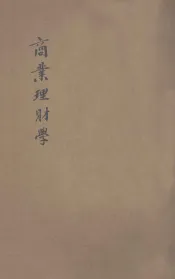 商業理財學